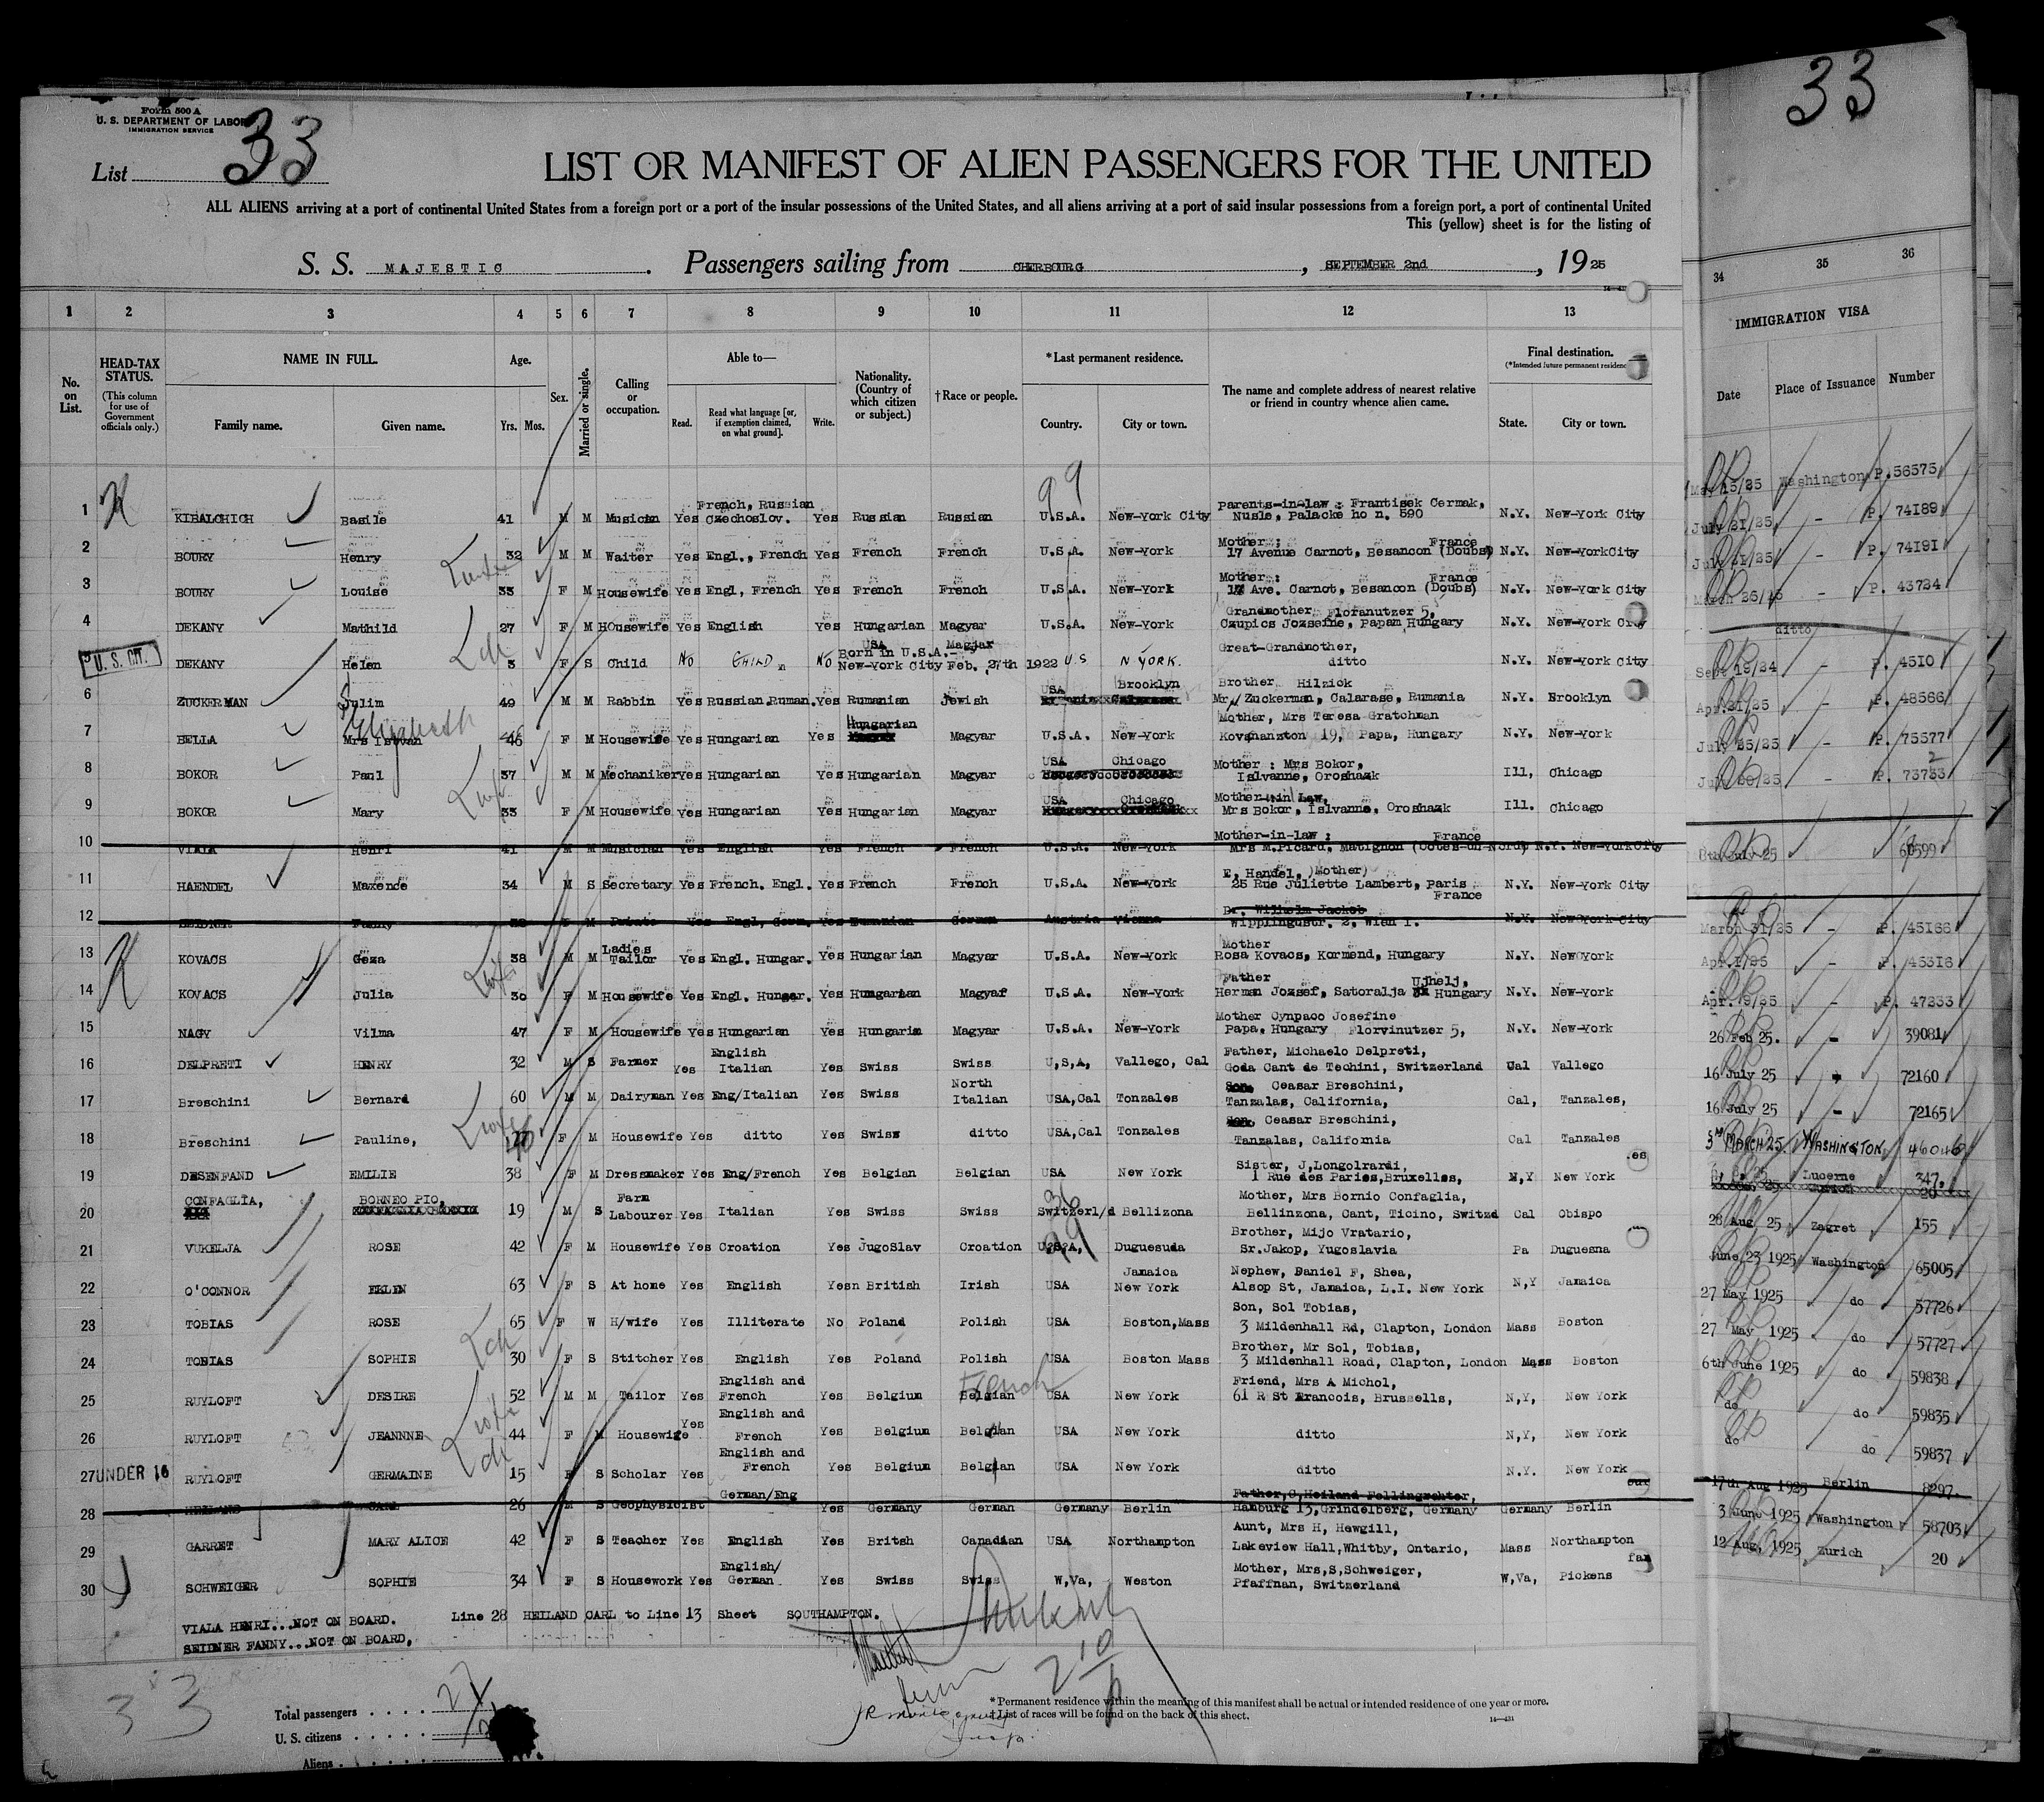 33
Form 500 A
U. S. DEPARTMENT OF LABOR
IMMIGRATION SERVICE
List 33
LIST OR MANIFEST OF ALIEN PASSENGERS FOR THE UNITED
ALL ALIENS arriving at a port of continental United States from a foreign port or a port of the insular possessions of the United States, and all aliens arriving at a port of said insular possessions from a foreign port, a port of continental United
This (yellow) sheet is for the listing of
S. S. MAJESTIC. Passengers sailing from CHERBOURG, SEPTEMBER 2nd, 1925
1 2 3 4 5 6 7 8 9 10 11 12 13 34 35 36
No. on List.
HEAD-TAX STATUS.
(This column for use of Government officials only.)
NAME IN FULL.
Family name. Given name.
Age.
Yrs. Mos.
Sex.
Married or single.
Calling or occupation.
Able to—
Read. Read what language [or, if exemption claimed, on what ground]. Write.
Nationality. (Country of which citizen or subject.)
†Race or people.
*Last permanent residence.
Country. City or town.
The name and complete address of nearest relative or friend in country whence alien came.
Final destination.
(*Intended future permanent residence
State. City or town.
IMMIGRATION VISA
Date Place of Issuance Number
1 KIBALCHICH Basile 41 M M Musician Yes French, Russian Czechoslov. Yes Russian Russian U.S.A. New-York City Parents-in-law : Frantisek Cermak, Nusle, Palacke ho n. 590 N.Y. New-York City
2 BOURY Henry 32 M M Waiter Yes Engl., French Yes French French U.S.A. New-York Mother : 17 Avenue Carnot, Besancon (Doubs) France N.Y. New-YorkCity
3 BOURY Louise 33 F M Housewife Yes Engl, French Yes French French U.S.A. New-York Mother : 17 Ave. Carnot, Besancon (Doubs) France N.Y. New-York City
4 DEKANY Mathild 27 F M HOusewife Yes English Yes Hungarian Magyar U.S.A. New-York Grandmother, Floranutzer 5, Czupics Jozsefne, Papam Hungary N.Y. New-York City
5 U. S. CIT. DEKANY Helen 3 F S Child No CHILD No USA Magjar Born in U.S.A.- New-York City Feb. 27th 1922 U S N YORK. Great-Grandmother, ditto N.Y. New-York City
6 ZUCKERMAN Sulim 49 M M Rabbin Yes Russian.Ruman. Yes Rumanian Jewish USA Brooklyn Brother Hilzick Mr Zuckerman, Calarase, Rumania N.Y. Brooklyn
7 BELLA Mrs Istvan Elizabeth 46 F M Housewife Yes Hungarian Yes Hungarian Magyar U.S.A. New-York Mother, Mrs Teresa Gratchman Kovshanzton 19, Papa, Hungary N.Y. New-York
8 BOKOR Paul 37 M M Mechaniker Yes Hungarian Yes Hungarian Magyar USA Chicago Mother : Mrs Bokor, Islvanne, Oroshazk Ill, Chicago
9 BOKOR Mary 33 F M Housewife Yes Hungarian Yes Hungarian Magyar USA Chicago Mother-in Law, Mrs Bokor, Islvanne, Oroshazk Ill. Chicago
10 VIALA Henri 41 M M Musician Yes English Yes French French U.S.A. New-York Mother-in-law : Mrs M.Picard, Matignon (Cotes-du-Nord) France N.Y. New-YorkCity
11 HAENDEL Maxence 34 M S Secretary Yes French. Engl. Yes French French U.S.A. New-York E, Handel, (Mother) 25 Rue Juliette Lambert, Paris France N.Y. New-York City
12 SEIDNER Fanny 38 F M Private Yes Engl, Germ. Yes Rumanian German Austria Vienna Dr. Wilhelm Jackob Wipplingustr. 2, Wien I. N.Y. New-York City
13 KOVACS Geza 38 M M Ladies Tailor Yes Engl. Hungar. Yes Hungarian Magyar U.S.A. New-York Mother Rosa Kovacs, Kormend, Hungary N.Y. New York
14 KOVACS Julia 30 F M Housewife Yes Engl. Hungar. Yes Hungarian Magyar U.S.A. New-York Father Herman Jozsef, Satoralja Ujhelj, Hungary N.Y. New-York
15 NAGY Vilma 47 F M Housewife Yes Hungarian Yes Hungaria Magyar U.S.A. New-York Mother Cynpaco Josefine Papa, Hungary Florvinutzer 5, N.Y. New-York
16 DELPRETI HENRY 32 M S Farmer Yes English Italian Yes Swiss Swiss U,S,A, Vallego, Cal Father, Michaelo Delpreti, Goda Cant de Techini, Switzerland Cal Vallego
17 Breschini Bernard 60 M M Dairyman Yes Eng/Italian Yes Swiss North Italian USA,Cal Tonzales Son, Ceasar Breschini, Tanzalas, California, Cal, Tanzales,
18 Breschini Pauline, F M Housewife Yes ditto Yes Swiss ditto USA,Cal Tonzales Son, Ceasar Breschini, Tanzalas, California Cal Tanzales
19 DESENFAND EMILIE 38 F M Dressmaker Yes Eng/French Yes Belgian Belgian USA New York Sister, J,Longolrardi, 1 Rue des Paries,Bruxelles, N,Y New York
20 CONFAGLIA, BORNEO PIO, 19 M S Farm Labourer Yes Italian Yes Swiss Swiss Switzerl/d Bellizona Mother, Mrs Bornio Confaglia, Bellinzona, Cant, Ticino, Switzd Cal Obispo
21 VUKELJA ROSE 42 F M Housewife Yes Croation Yes JugoSlav Croation U,S,A, Duguesuda Brother, Mijo Vratario, Sr.Jakop, Yugoslavia Pa Duguesna
22 O'CONNOR EKLEN 63 F S At home Yes English Yesn British Irish USA Jamaica New York Nephew, Daniel F, Shea, Alsop St, Jamaica, L.I. New York N,Y Jamaica
23 TOBIAS ROSE 65 F W H/wife Yes Illiterate No Poland Polish USA Boston,Mass Son, Sol Tobias, 3 Mildenhall Rd, Clapton, London Mass Boston
24 TOBIAS SOPHIE 30 F S Stitcher Yes English Yes Poland Polish USA Boston Mass Brother, Mr Sol, Tobias, 3 Mildenhall Road, Clapton, London Mass Boston
25 RUYLOFT DESIRE 52 M M Tailor Yes English and French Yes Belgium Belgian French USA New York Friend, Mrs A Michol, 61 R St Francois, Brussells, N,Y, New York
26 RUYLOFT JEANNNE 44 F M Housewife Yes English and French Yes Belgium Belgian USA New York ditto N,Y, New York
27 UNDER 16 RUYLOFT GERMAINE 15 F S Scholar Yes English and French Yes Belgium Belgian USA New York ditto N.Y. New York
28 HEILAND CARL 26 M S Geophysicist German/Eng Yes Germany German Germany Berlin Father,C,Heiland Fellingwohter, Hamburg 13,Grindelberg, Germany Germany Berlin
29 GARRET MARY ALICE 42 F S Teacher Yes English Yes Britsh Canadian USA Northampton Aunt, Mrs H, Hewgill, Lakeview Hall,Whitby, Ontario, Mass Northampton
30 SCHWEIGER SOPHIE 34 F S Housework Yes English/ German Yes Swiss Swiss W,Va, Weston Mother, Mrs,S,Schweiger, Pfaffnan, Switzerland W,Va, Pickens
VIALA HENRI...NOT ON BOARD. Line 28 HEILAND CARL to Line 13 Sheet SOUTHAMPTON.
SEIDNER FANNY...NOT ON BOARD,
33
Total passengers
U. S. citizens
Aliens
*Permanent residence within the meaning of this manifest shall be actual or intended residence of one year or more.
†List of races will be found on the back of this sheet.
14—431
33
May 15/25 Washington P.56575
July 21/25 - P. 74189
July 21/25 - P. 74191
March 26/25 - P. 43724
ditto
Sept 19/24 - P. 4510
Apr.21/25 - P. 48566
July 25/25 - P. 75577
July 20/25 - P. 73733 2
8th July 25 60599
March 31/25 - P. 45166
Apr.1/25 - P. 45316
Apr. 9/25 - P. 47233
26 Feb 25. - 39081
16 July 25 - 72160
16 July 25 - 72165
5th MARCH 25. WASHINGTON. 46046
Lucerne 347.
28 Aug 25 Zagret 155
June 23 1925 Washington 65005
27 May 1925 do 57726
27 May 1925 do 57727
6th June 1925 do 59838
do do 59835
do do 59837
17th Aug 1925 Berlin 8297.
3 June 1925 Washington 58703
12 Aug, 1925 Zurich 20